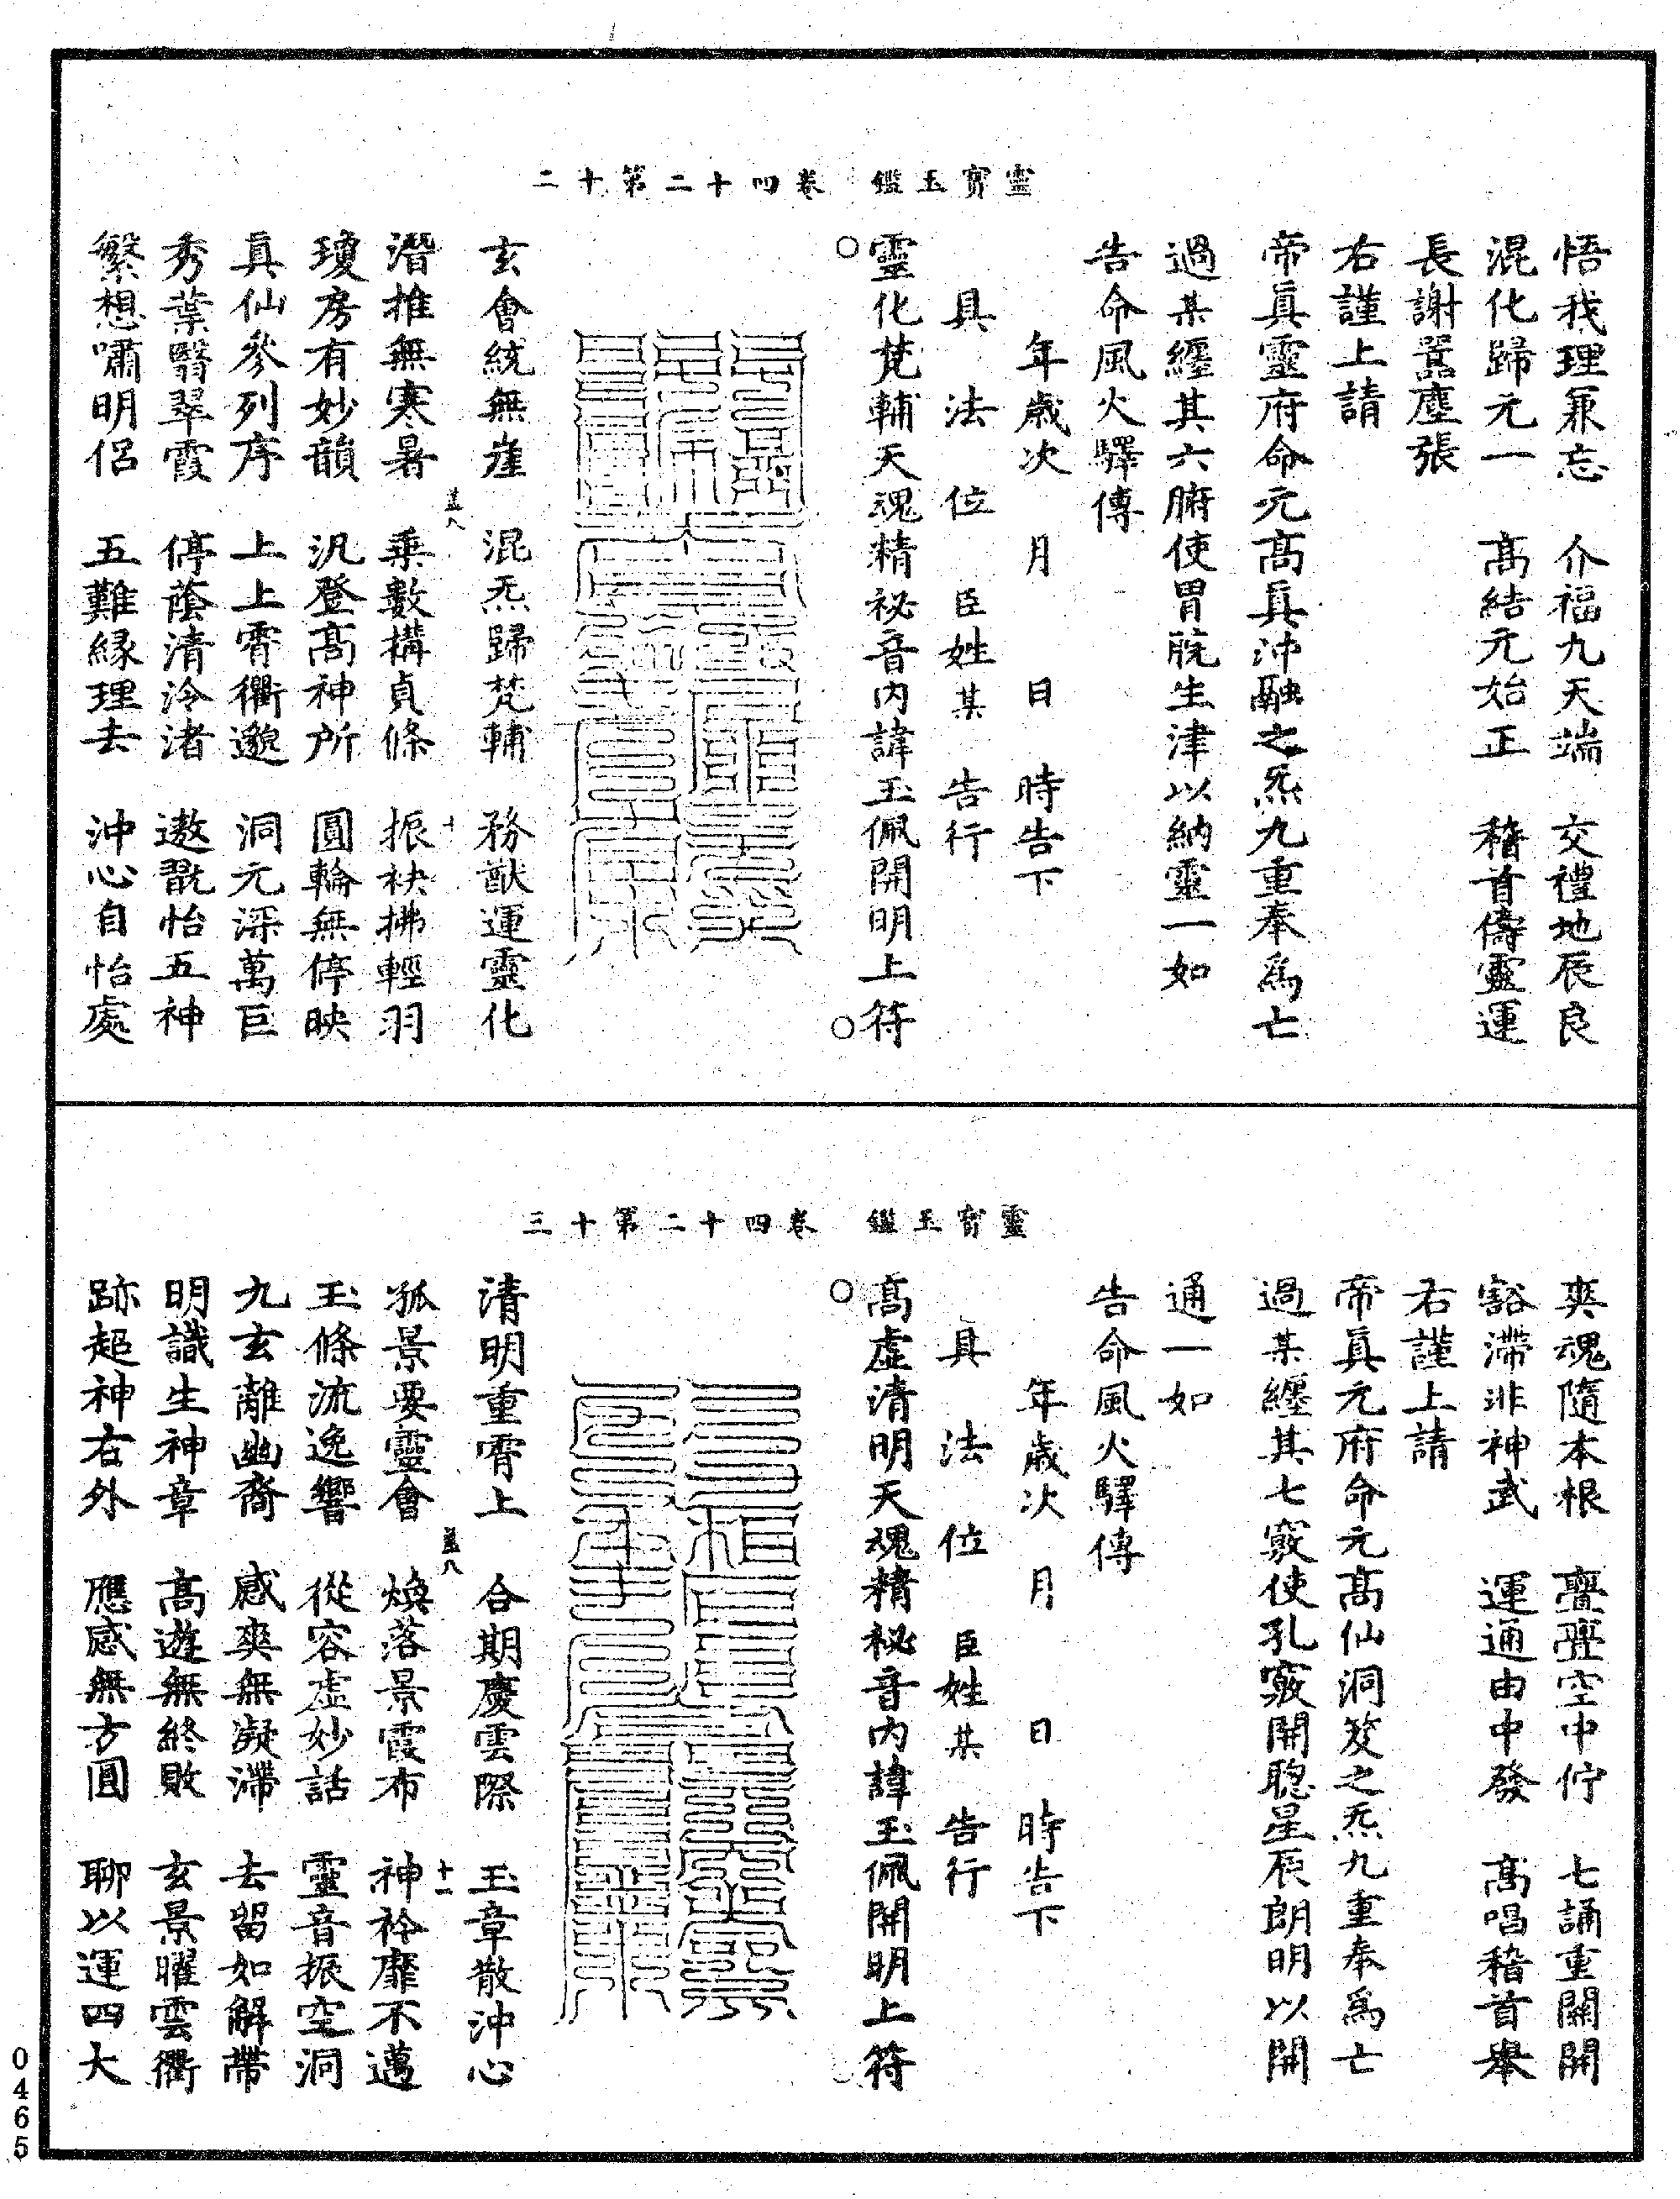 靈寶玉鑑　卷四十二第十二
悟我理兼忘　介福九天端　交禮地辰良
混化歸元一　高結元始正　稽首儔靈運
長謝囂塵張
右謹上請
帝真靈府命元高真沖融之炁九重奉為亡
過某纏其六腑使胃脘生津以納靈一如
告命風火驛傳
年歲次　月　日　時告下
具　法　位　臣姓某　告行
靈化梵輔天魂精祕音內諱玉佩開明上符
○　○
玄會統無崖　混炁歸梵輔　務猷運靈化
蓋八　十
潛推無寒暑　乘數構貞條　振袂拂輕羽
瓊房有妙韻　汎登高神所　圓輪無停映
真仙參列序　上上霄衢邈　洞元深萬巨
秀葉翳翠霞　停蔭清泠渚　遨翫怡五神
繁想嘯明侶　五難緣理去　沖心自怡處
靈寶玉鑑　卷四十二第十三
爽魂隨本根　亹亹空中佇　七誦重關開
豁滯非神武　運通由中發　高唱稽首舉
右謹上請
帝真元府命元高仙洞笈之炁九重奉為亡
過某纏其七竅使孔竅開聰星辰朗明以開
通一如
告命風火驛傳
年歲次　月　日　時告下
具　法　位　臣姓某　告行
高虛清明天魂精祕音內諱玉佩開明上符
○
清明重霄上　合期慶雲際　玉章散沖心
蓋八　十一
孤景要靈會　煥落景霞布　神衿靡不邁
玉條流逸響　從容虛妙話　靈音振空洞
九玄離幽裔　感爽無凝滯　去留如解帶
明識生神章　高遊無終敗　玄景曜雲衢
跡超神右外　應感無方圓　聊以運四大
0465